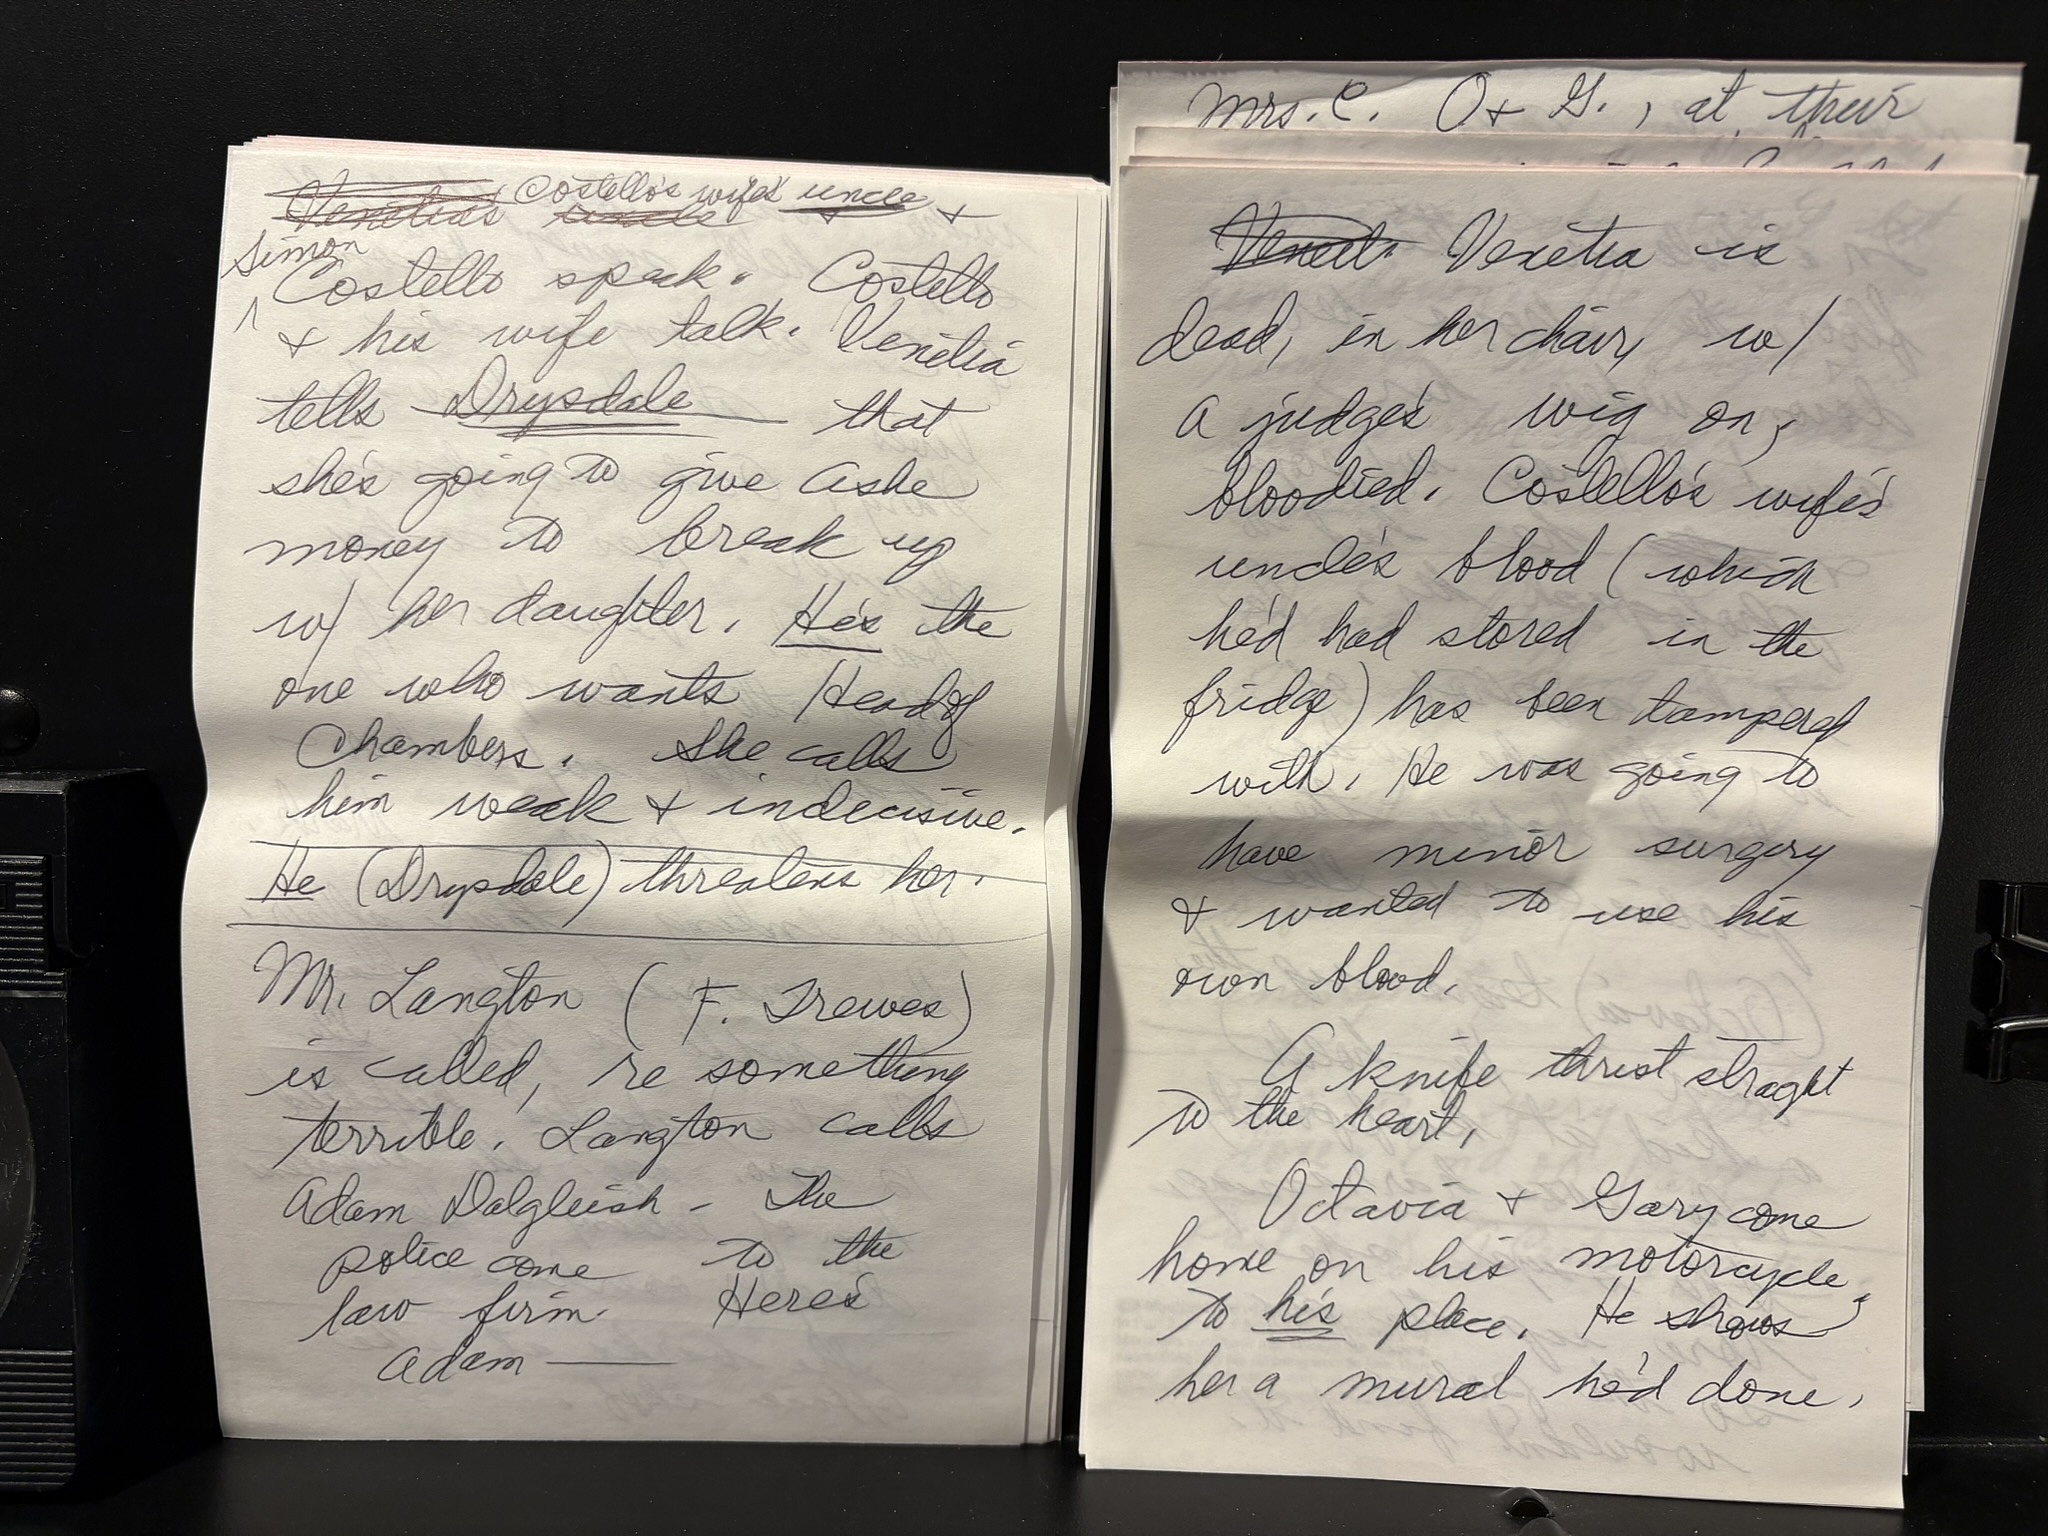 Venetia's uncle Costello's wife's uncle +
Simon
Costello speak. Costello
+ his wife talk. Venetia
tells Drysdale that
she's going to give Ashe
money to break up
w/ her daughter. He's the
one who wants Head of
Chambers. She calls
him weak + indecisive.
He (Drysdale) threatens her.
Mr. Langton (F. Trewes)
is called, re something
terrible. Langton calls
Adam Dalgleish - The
police come to the
law firm. Here's
Adam —
Mrs. C. O + G., at their
Veneti Venetia is
dead, in her chair, w/
a judge's wig on,
bloodied. Costello's wife's
uncle's blood (which
he'd had stored in the
fridge) has been tampered
with. He was going to
have minor surgery
+ wanted to use his
own blood.
A knife thrust straght
to the heart.
Octavia + Gary come
home on his motorcycle,
to his place. He shows
her a mural he'd done.